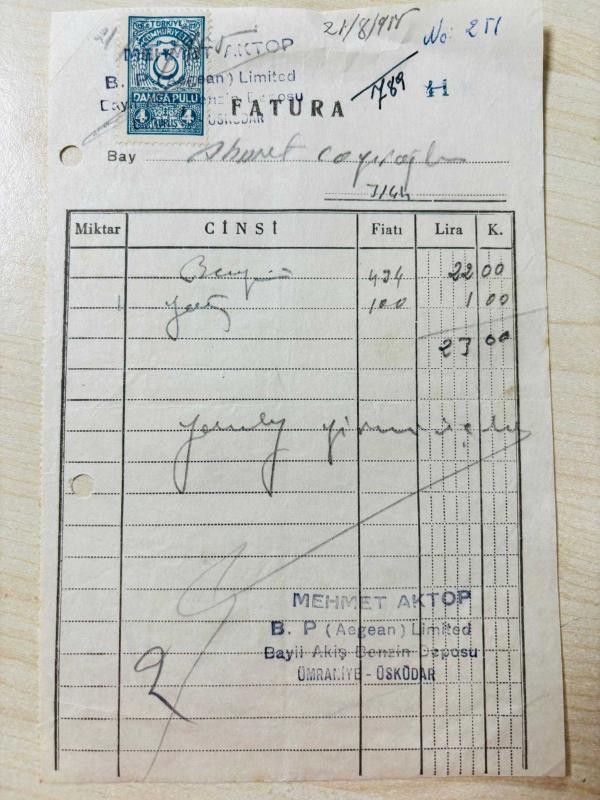 21/8/955
No: 251
TÜRKİYE
CUMHURİYETİ
MEHMET AKTOP
B. P (Aegean) Limited
DAMGA PULU
Benzin Deposu
4 4
ÜSKÜDAR
FATURA
789
11
Bay Ahmet
Miktar CİNSİ Fiatı Lira K.
Benzin 434 22 00
1 100 1 00
23 00
Yalnız yirmi üç lira
MEHMET AKTOP
B. P (Aegean) Limited
Bayii Akiş Benzin Deposu
ÜMRANİYE - ÜSKÜDAR
2